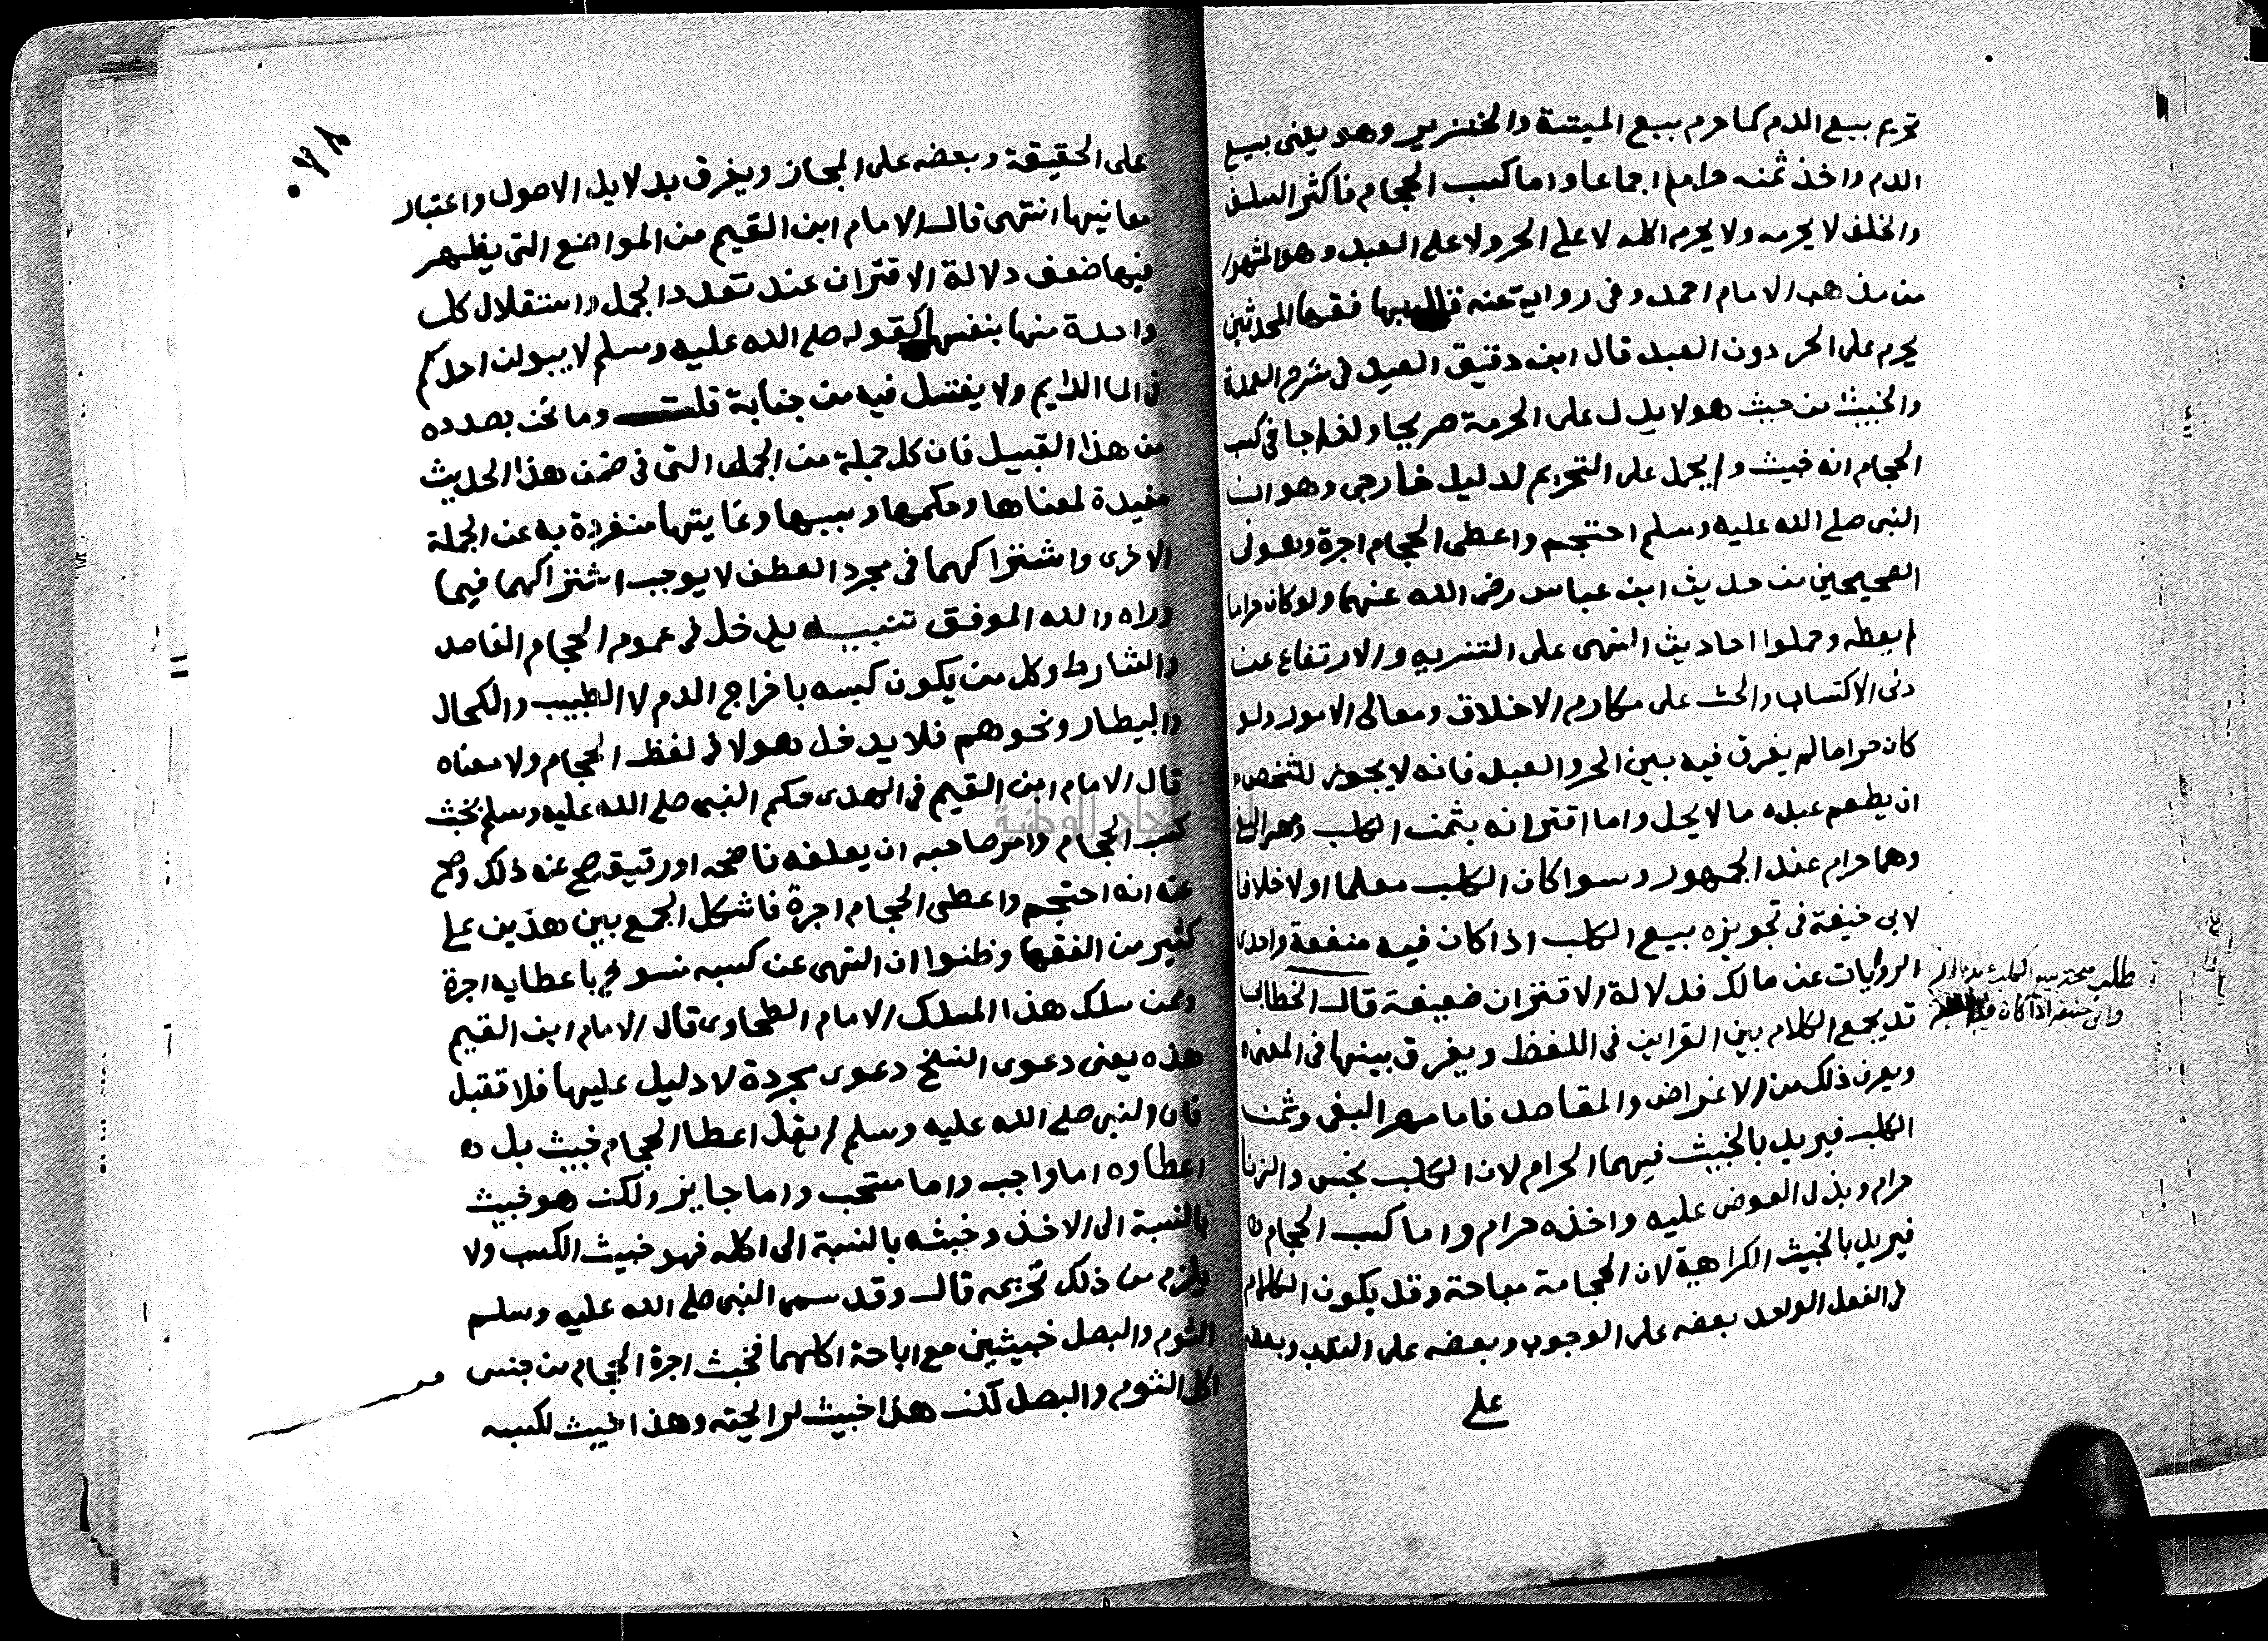 تحريم بيع الدم كما حرم بيع الميتة والخنزير وهو يعنى بيع
الدم واخذ ثمنه حرام اجماعا واما كسب الحجام فاكثر السلف
والخلف لا يحرمه ولا يحرم اكله لا على الحر ولا على العبد وهو المشهور
من مذهب الامام احمد وفى رواية عنه قال بها فقها المحدثين
يحرم على الحر دون العبد قال ابن دقيق العيد فى شرح العمدة
والخبيث من حيث هو لا يدل على الحرمة صريحا ولذا جا فى كسب
الحجام انه خبيث ولم يحمل على التحريم لدليل خارجى وهو ان
النبى صلى الله عليه وسلم احتجم واعطى الحجام اجرة وهو فى
الصحيحين من حديث ابن عباس رضى الله عنهما ولو كان حراما
لم يعطه وحملوا احاديث النهى على التنزيه والارتفاع عن
دنى الاكتساب والحث على مكارم الاخلاق ومعالى الامور ولو
كان حراما لم يفرق فيه بين الحر والعبد فانه لا يجوز للشخص
ان يطعم عبده ما لا يحل واما اقترانه بثمن الكلب ومهر البغى
وهما حرام عند الجمهور وسوا كان الكلب معلما او لا خلافا
لابى حنيفة فى تجويزه بيع الكلب اذا كان فيه منفعة واحدى
الروايات عن مالك فدلالة الاقتران ضعيفة قال الخطابى
قد يجمع الكلام بين القراين فى اللفظ ويفرق بينها فى المعنى
ويعرف ذلك من الاغراض والمقاصد فاما مهر البغى وثمن
الكلب فيريد بالخبيث فيهما الحرام لان الكلب نجس والزنا
حرام وبذل العوض عليه واخذه حرام واما كسب الحجام
فيريد بالخبيث الكراهية لان الحجامة مباحة وقد يكون الكلام
فى الفعل الواحد بعضه على الوجوب وبعضه على الندب وبعضه
على
وابى حنيفة اذا كان
على الحقيقة وبعضه على المجاز ويفرق بدلايل الاصول واعتبار
معانيها انتهى قال الامام ابن القيم من المواضع التى يظهر
فيها ضعف دلالة الاقتران عند تعدد الجمل واستقلال كل
واحدة منها بنفسها كقوله صلى الله عليه وسلم لا يبولن احدكم
فى الما الدايم ولا يغتسل فيه من جنابة قلت وما نحن بصدده
من هذا القبيل فان كل جملة من الجمل التى فى ضمن هذا الحديث
مفيدة لمعناها وحكمها وسببها وغايتها منفردة به عن الجملة
الاخرى واشتراكهما فى مجرد العطف لا يوجب اشتراكهما فيما
وراه والله الموفق تنبيه يدخل فى عموم الحجام الفاصد
والشارط وكل من يكون كسبه باخراج الدم لا الطبيب والكحال
والبيطار ونحوهم فلا يدخل هولا فى لفظ الحجام ولا معناه
قال الامام ابن القيم فى الهدى حكم النبى صلى الله عليه وسلم بخبث
كسب الحجام وامر صاحبه ان يعلفه ناضحه او رقيقه صح عنه ذلك وصح
عنه انه احتجم واعطى الحجام اجرة فاشكل الجمع بين هذين على
كثير من الفقها وظنوا ان النهى عن كسبه منسوخ باعطايه اجرة
وممن سلك هذا المسلك الامام الطحاوى قال الامام ابن القيم
هذه يعنى دعوى النسخ دعوى مجردة لا دليل عليها فلا تقبل
فان النبى صلى الله عليه وسلم لم يقل اعطا الحجام خبيث بل
اعطاوه اما واجب واما مستحب واما جايز ولكن هو خبيث
بالنسبة الى الاخذ وخبثه بالنسبة الى اكله فهو خبيث الكسب ولا
يلزم من ذلك تحريمه قال وقد سمى النبى صلى الله عليه وسلم
الثوم والبصل خبيثين مع اباحة اكلهما فخبث اجرة الحجام من جنس
اكل الثوم والبصل لكن هذا خبيث لرايحته وهذا خبيث لكسبه